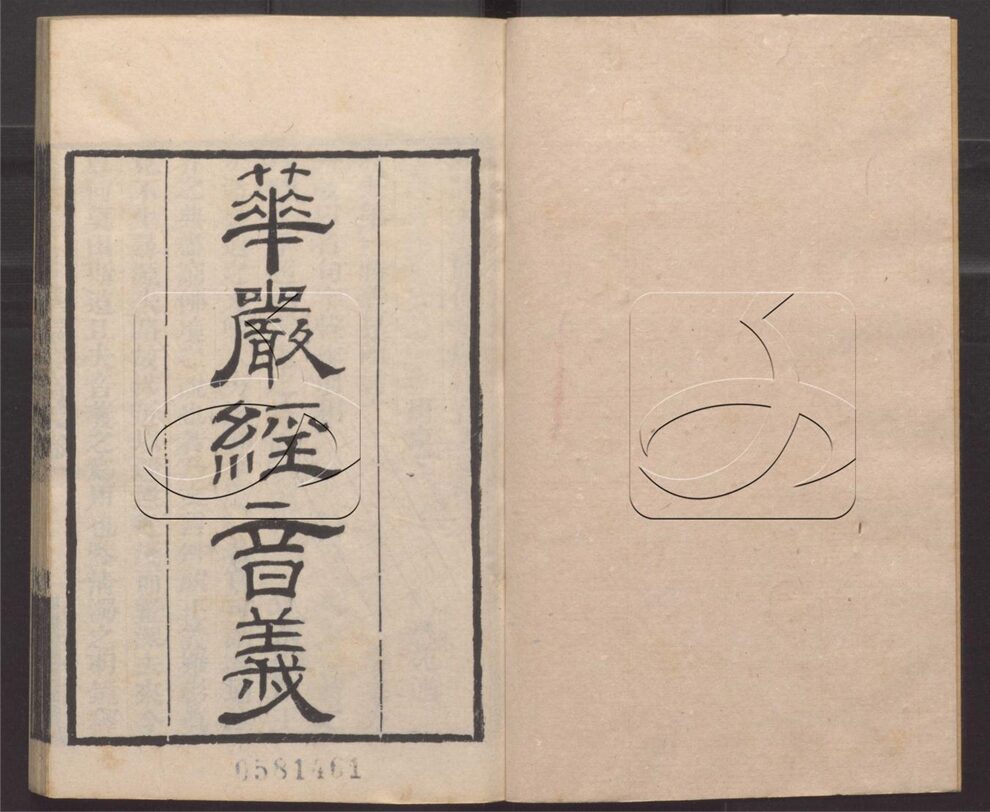 華嚴經音義
0581461